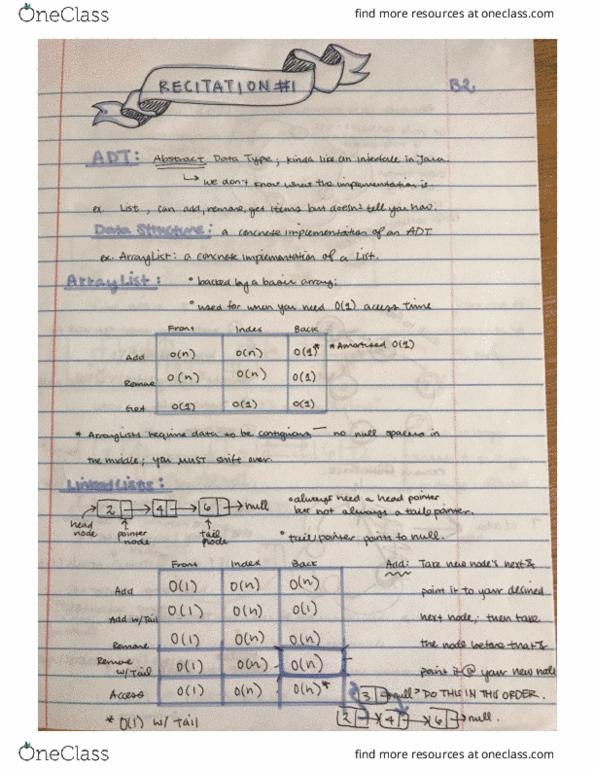 OneClass
find more resources at oneclass.com
RECITATION #1
B2.
ADT: Abstract Data Type; kinda like an interface in Java.
↳ we don't know what the implementation is.
ex. List, can add, remove, get items but doesn't tell you how.
Data Structure: a concrete implementation of an ADT.
ex. ArrayList: a concrete implementation of a List.
ArrayList: • backed by a basic array;
• used for when you need O(1) access time
Front Index Back
Add O(n) O(n) O(1)* * Amortized O(1)
Remove O(n) O(n) O(1)
Get O(1) O(1) O(1)
* ArrayLists require data to be contiguous — no null spaces in
the middle; you MUST shift over.
Linked Lists:
2 → 4 → 6 → null
head node
pointer node
tail node
• always need a head pointer
but not always a tail pointer.
• tail pointer points to null.
Front Index Back
Add O(1) O(n) O(n)
Add w/Tail O(1) O(n) O(1)
Remove O(1) O(n) O(n)
Remove w/Tail O(1) O(n) O(n)
Access O(1) O(n) O(n)*
* O(1) w/ tail
Add: Take new node's next &
point it to your desired
next node; then take
the node before that &
point it @ your new node
3 → null > DO THIS IN THIS ORDER.
2 → 4 → 6 → null.
OneClass
find more resources at oneclass.com